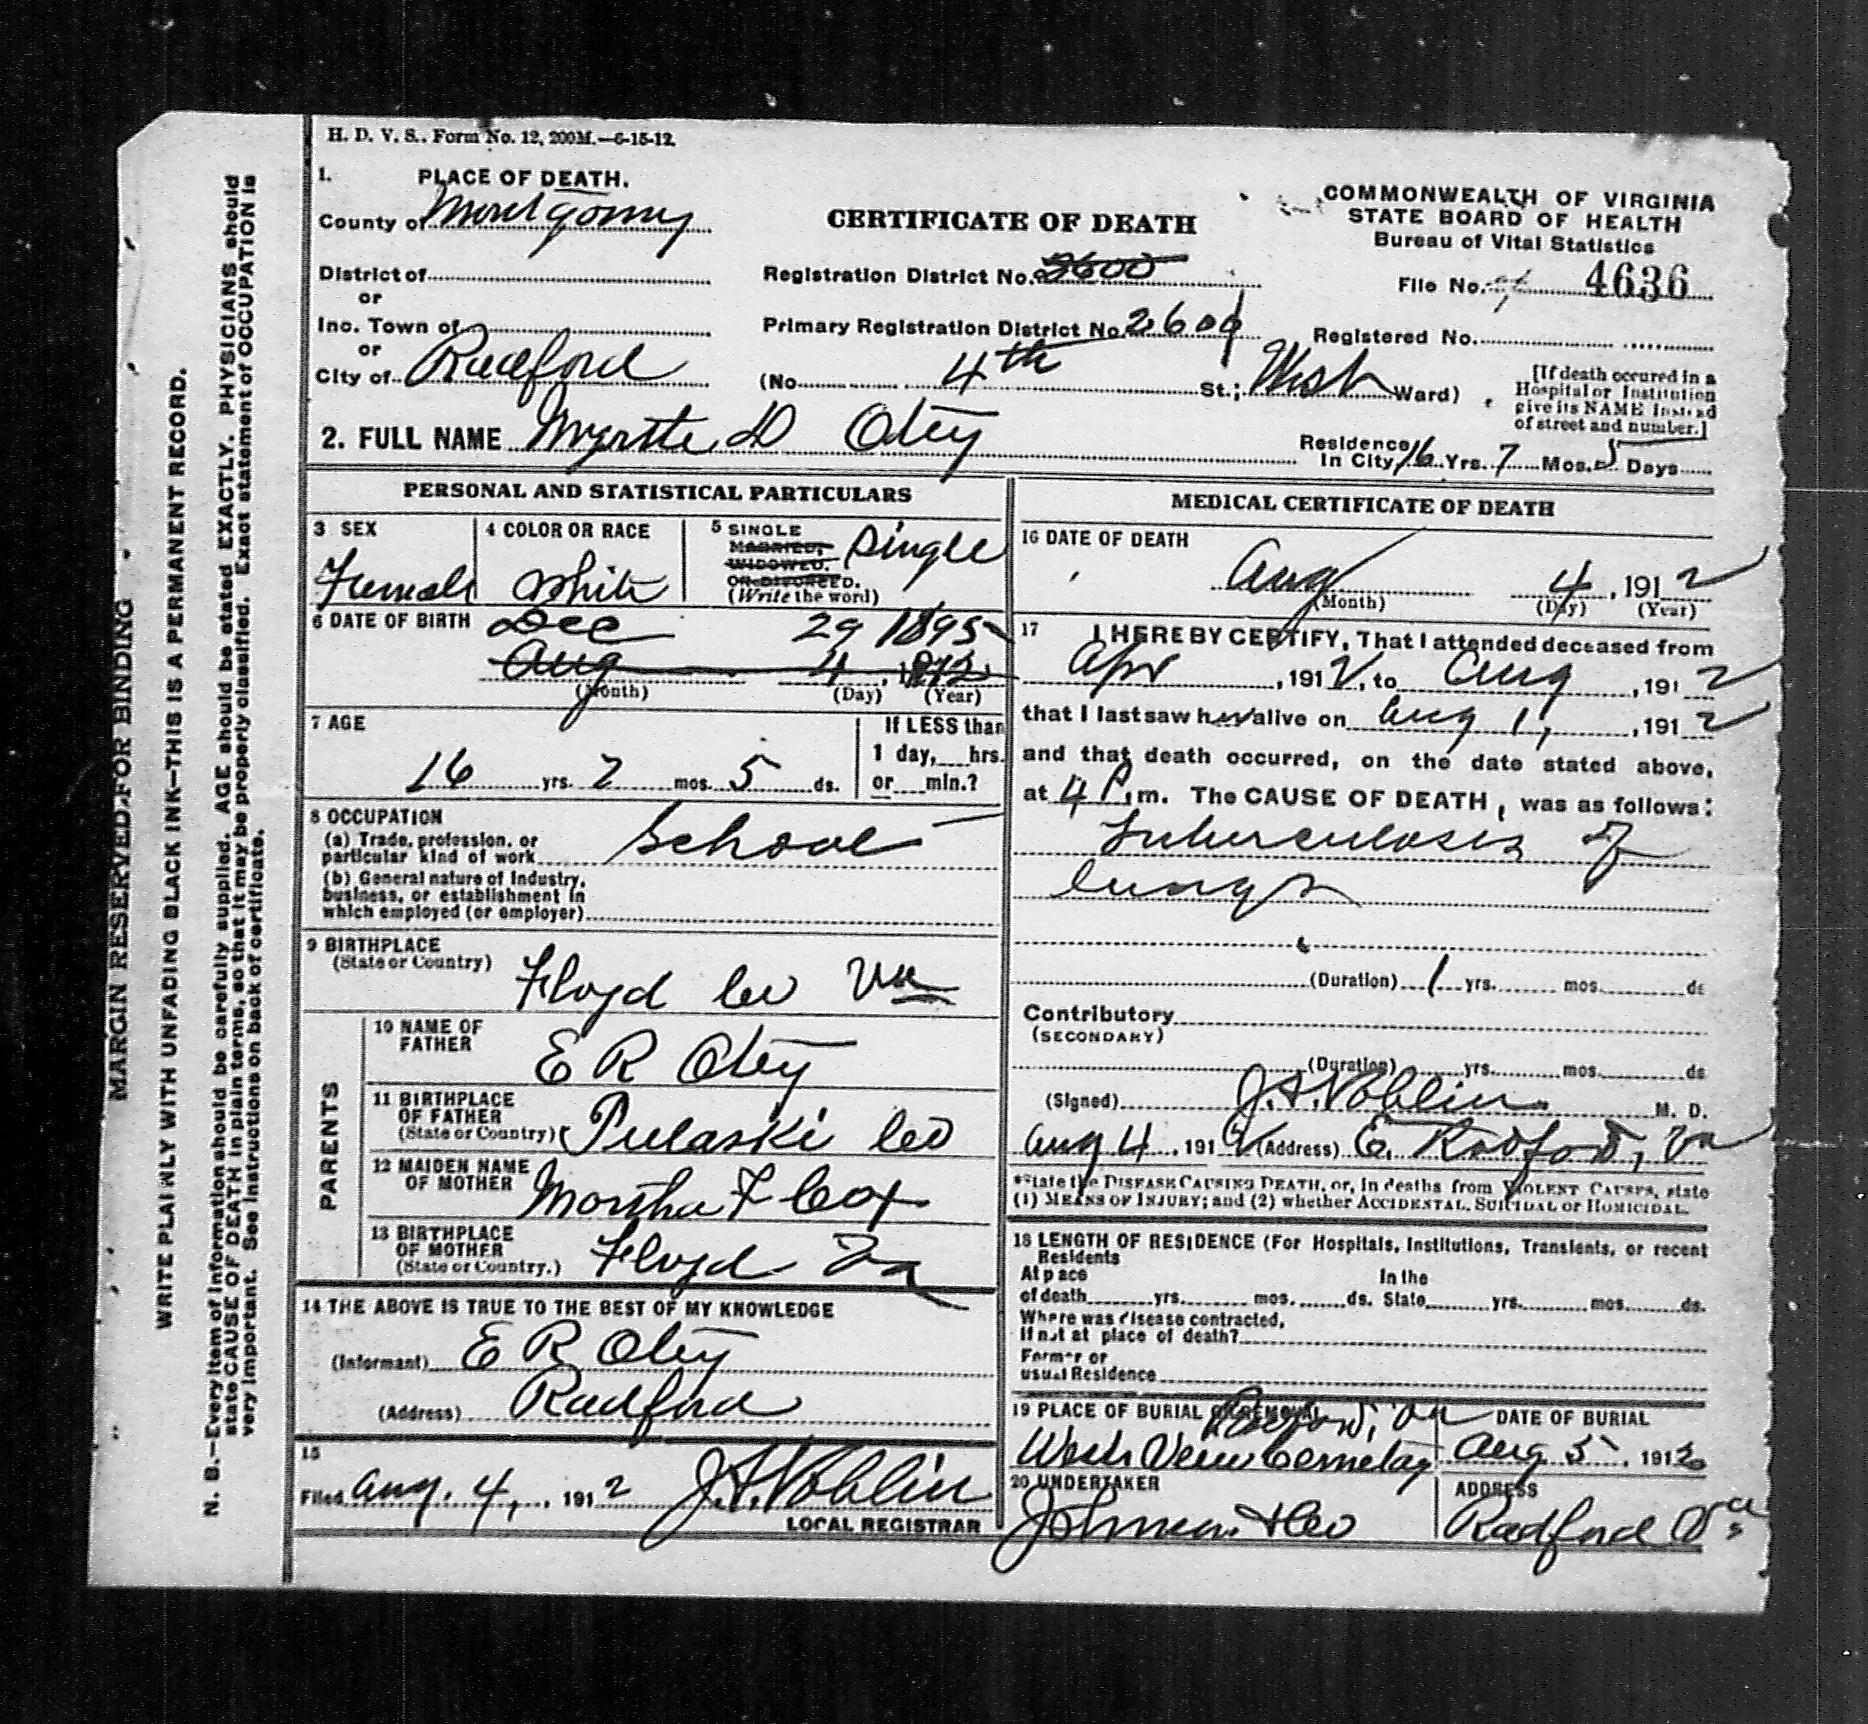 H. D. V. S., Form No. 12, 200M.—6-15-12.
1. PLACE OF DEATH.
County of Montgomy
District of
or
Inc. Town of
or
City of Radford
CERTIFICATE OF DEATH
Registration District No. 2600
Primary Registration District No. 2609
(No. 4th St.; West Ward)
COMMONWEALTH OF VIRGINIA
STATE BOARD OF HEALTH
Bureau of Vital Statistics
File No. 4636
Registered No.
[If death occured in a
Hospital or Institution
give its NAME instead
of street and number.]
2. FULL NAME Myrtte D Otey
Residence
In City 16 Yrs. 7 Mos. 5 Days
PERSONAL AND STATISTICAL PARTICULARS
3 SEX
Female
4 COLOR OR RACE
White
5 SINGLE
MARRIED,
WIDOWED,
OR DIVORCED.
(Write the word)
Single
6 DATE OF BIRTH Dec 29 1895
Aug 4, 1912
(Month) (Day) (Year)
7 AGE
16 yrs. 7 mos. 5 ds.
If LESS than
1 day, hrs.
or min.?
8 OCCUPATION
(a) Trade, profession, or
particular kind of work School
(b) General nature of Industry,
business, or establishment in
which employed (or employer)
9 BIRTHPLACE
(State or Country) Floyd Co Va
PARENTS
10 NAME OF
FATHER
E R Otey
11 BIRTHPLACE
OF FATHER
(State or Country) Pulaski Co
12 MAIDEN NAME
OF MOTHER Martha F Cox
13 BIRTHPLACE
OF MOTHER
(State or Country.) Floyd Va
14 THE ABOVE IS TRUE TO THE BEST OF MY KNOWLEDGE
(Informant) E R Otey
(Address) Radford
15
Filed Aug. 4, 1912 J.A. Noblin
LOCAL REGISTRAR
MEDICAL CERTIFICATE OF DEATH
16 DATE OF DEATH
Aug 4, 1912
(Month) (Day) (Year)
17 I HEREBY CERTIFY, That I attended deceased from
Apr, 1912, to Aug, 1912
that I last saw her alive on Aug 1, 1912
and that death occurred, on the date stated above,
at 4 P.m. The CAUSE OF DEATH, was as follows:
Tuberculosis of
lungs
(Duration) 1 yrs. mos. ds
Contributory
(SECONDARY)
(Duration) yrs. mos. ds
(Signed) J.A. Noblin M. D.
Aug 4, 1912 (Address) E. Radford, Va
*State the DISEASE CAUSING DEATH, or, in deaths from VIOLENT CAUSES, state
(1) MEANS OF INJURY; and (2) whether ACCIDENTAL, SUICIDAL or HOMICIDAL.
18 LENGTH OF RESIDENCE (For Hospitals, Institutions, Transients, or recent
Residents
At place In the
of death yrs. mos. ds. State yrs. mos. ds.
Where was disease contracted,
If not at place of death?
Former or
usual Residence
19 PLACE OF BURIAL OR REMOVAL
Radford, Va
West View Cemetery
DATE OF BURIAL
Aug 5, 1912
20 UNDERTAKER
Johnson & Co
ADDRESS
Radford Va
MARGIN RESERVED FOR BINDING
WRITE PLAINLY WITH UNFADING BLACK INK—THIS IS A PERMANENT RECORD.
N. B.—Every item of information should be carefully supplied. AGE should be stated EXACTLY. PHYSICIANS should
state CAUSE OF DEATH in plain terms, so that it may be properly classified. Exact statement of OCCUPATION is
very important. See instructions on back of certificate.